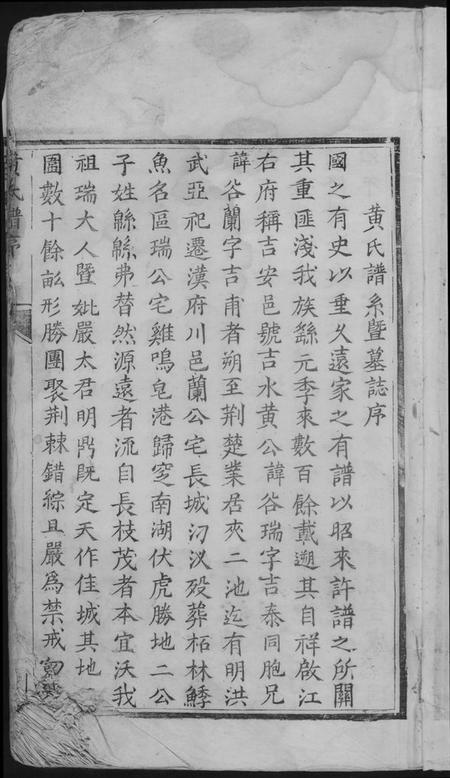 黄氏譜系暨墓誌序
國之有史以垂久遠家之有譜以昭來許譜之所關
其重匪淺我族繇元季來數百餘載遡其自祥啟江
右府稱吉安邑號吉水黄公諱谷瑞字吉泰同胞兄
諱谷蘭字吉甫者朔至荆楚業居夾二池迄有明洪
武亞祀遷漢府川邑蘭公宅長城汈汊殁葬柘林鯚
魚名區瑞公宅雞鳴皂港歸窆南湖伏虎勝地二公
子姓緜緜弗替然源遠者流自長枝茂者本宜沃我
祖瑞大人暨妣嚴太君明鼎既定天作佳城其地
圖數十餘畝形勝團聚荆棘錯綜且嚴爲禁戒
黄氏譜序